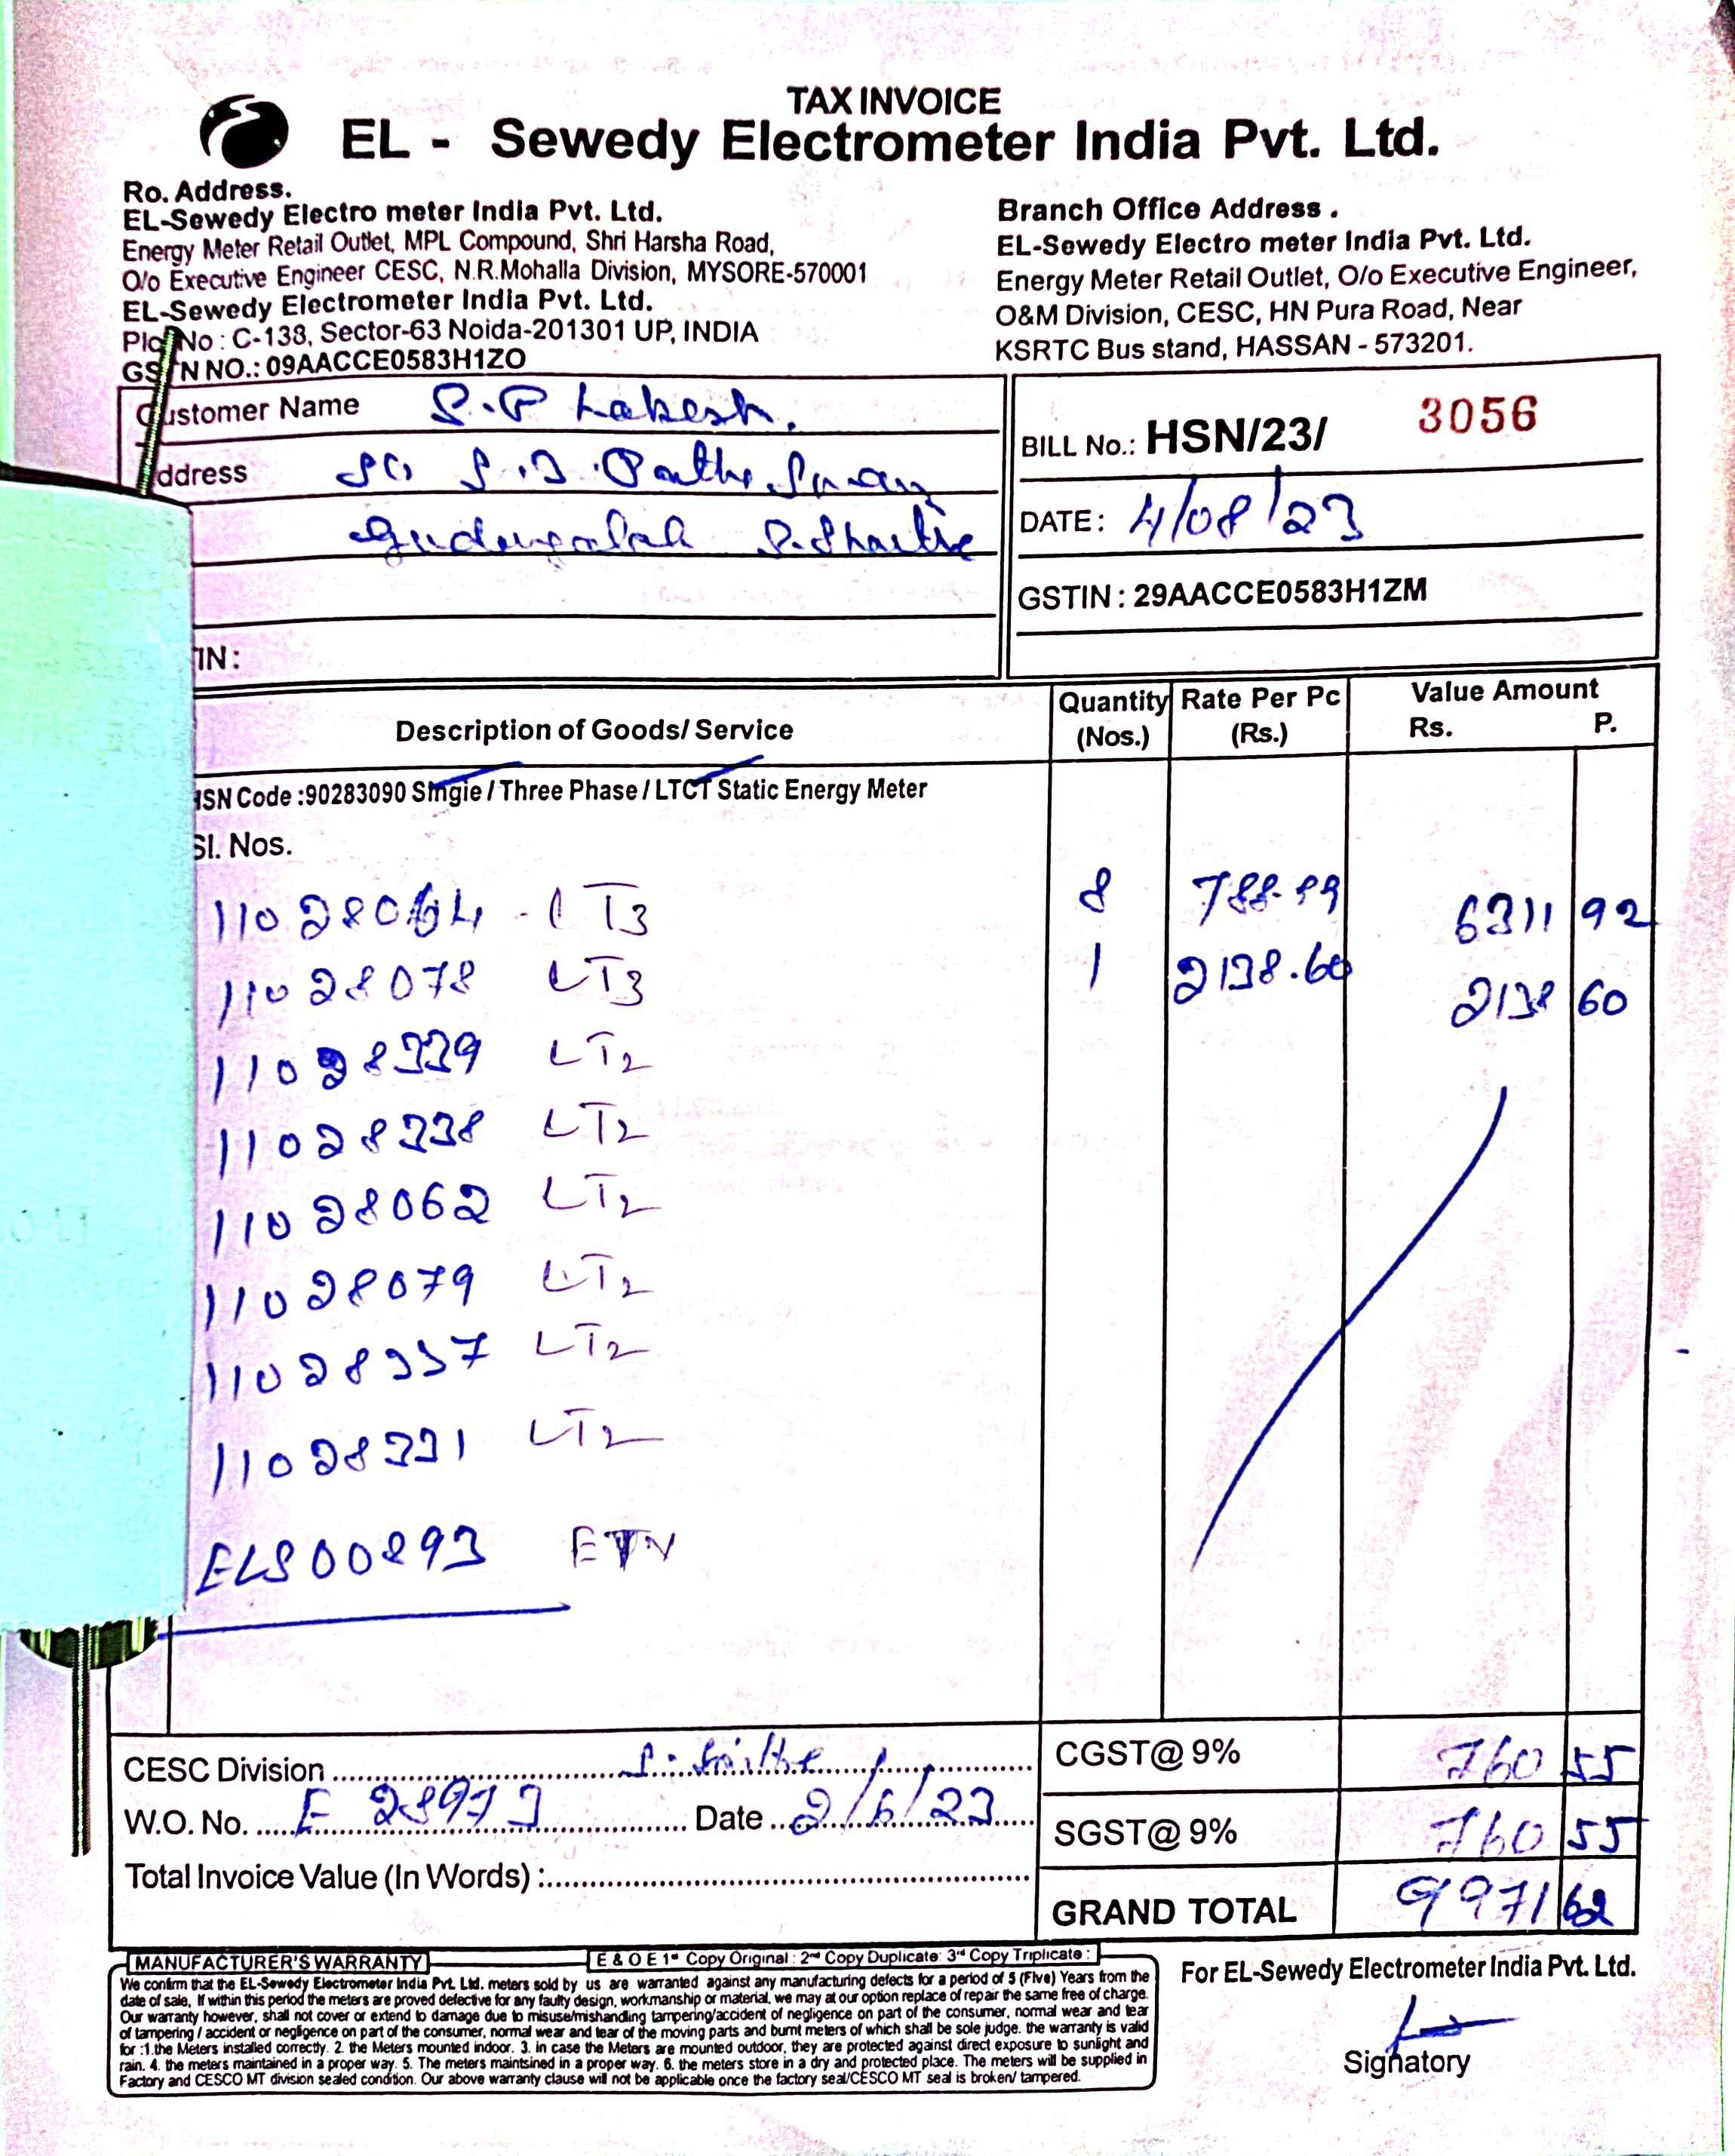 TAX INVOICE
EL - Sewedy Electrometer India Pvt. Ltd.
Ro. Address.
EL-Sewedy Electro meter India Pvt. Ltd.
Energy Meter Retail Outlet, MPL Compound, Shri Harsha Road,
O/o Executive Engineer CESC, N.R.Mohalla Division, MYSORE-570001
EL-Sewedy Electrometer India Pvt. Ltd.
No : C-138, Sector-63 Noida-201301 UP, INDIA
GS N NO.: 09AACCE0583H1ZO
Branch Office Address .
EL-Sewedy Electro meter India Pvt. Ltd.
Energy Meter Retail Outlet, O/o Executive Engineer,
O&M Division, CESC, HN Pura Road, Near
KSRTC Bus stand, HASSAN - 573201.
Customer Name S.P Lakesh.
ddress
BILL No.: HSN/23/ 3056
DATE : 4/08/23
GSTIN : 29AACCE0583H1ZM
TIN :
Description of Goods/ Service
Quantity (Nos.)
Rate Per Pc (Rs.)
Value Amount
Rs. P.
HSN Code :90283090 Single / Three Phase / LTCT Static Energy Meter
Sl. Nos.
11028064 - LT3 8 788.99 6311 92
11028078 LT3 1 2138.60 2138 60
11028339 LT2
11028338 LT2
11028062 LT2
11028079 LT2
11028337 LT2
11028331 LT2
ELS00893
CESC Division
W.O. No. Date 2/6/23
Total Invoice Value (In Words) :
CGST@ 9% 760 55
SGST@ 9% 760 55
GRAND TOTAL 9971 62
MANUFACTURER'S WARRANTY
E & O E 1st Copy Original : 2nd Copy Duplicate: 3rd Copy Triplicate :
We confirm that the EL-Sewedy Electrometer India Pvt. Ltd. meters sold by us are warranted against any manufacturing defects for a period of 5 (Five) Years from the
date of sale, If within this period the meters are proved defective for any faulty design, workmanship or material, we may at our option replace of repair the same free of charge.
Our warranty however, shall not cover or extend to damage due to misuse/mishandling tampering/accident of negligence on part of the consumer, normal wear and tear
of tampering / accident or negligence on part of the consumer, normal wear and tear of the moving parts and burnt meters of which shall be sole judge. the warranty is valid
for :1.the Meters installed correctly. 2. the Meters mounted indoor. 3. in case the Meters are mounted outdoor, they are protected against direct exposure to sunlight and
rain. 4. the meters maintained in a proper way. 5. The meters maintsined in a proper way. 6. the meters store in a dry and protected place. The meters will be supplied in
Factory and CESCO MT division sealed condition. Our above warranty clause will not be applicable once the factory seal/CESCO MT seal is broken/ tampered.
For EL-Sewedy Electrometer India Pvt. Ltd.
Signatory